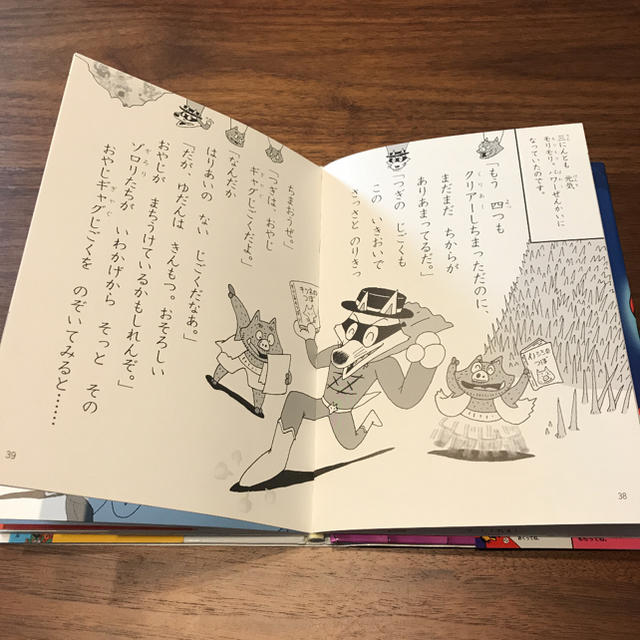 三にんとも 元気
モリモリ、パワーぜんかいに
なっていたのです。
「もう 四つも
クリアーしちまっただのに、
まだまだ ちからが
ありあまってるだ。」
「つぎの じごくも
この いきおいで
さっさと のりきっ
ちまおうぜ。」
「つぎは、おやじ
ギャグじごくだよ。」
「なんだか
はりあいの ない じごくだなあ。」
「だが、ゆだんは きんもつ。おそろしい
おやじが まちうけているかもしれんぞ。」
ゾロリたちが いわかげから そっと その
おやじギャグじごくを のぞいてみると……
キツネの
つぼ
イノシシの
つぼ
38
39